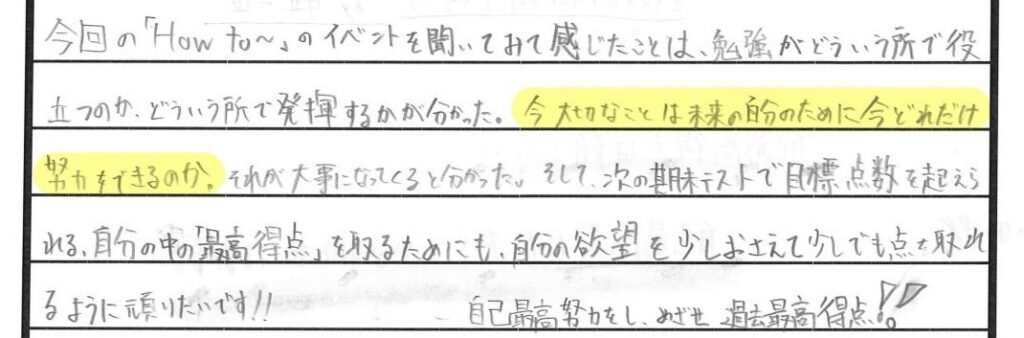 今回の「How to～」のイベントを聞いておて感じたことは、勉強がどういう所で役
立つのか、どういう所で発揮するかが分かった。今大切なことは未来の自分のために今どれだけ
努力をできるのか。それが大事になってくると分かった。そして、次の期末テストで目標点数を起えら
れる、自分の中の「最高得点」を取るためにも、自分の欲望を少しおさえて少しでも点を取れ
るように頑りたいです!!　自己最高努力をし、めざせ 過去最高得点!!。